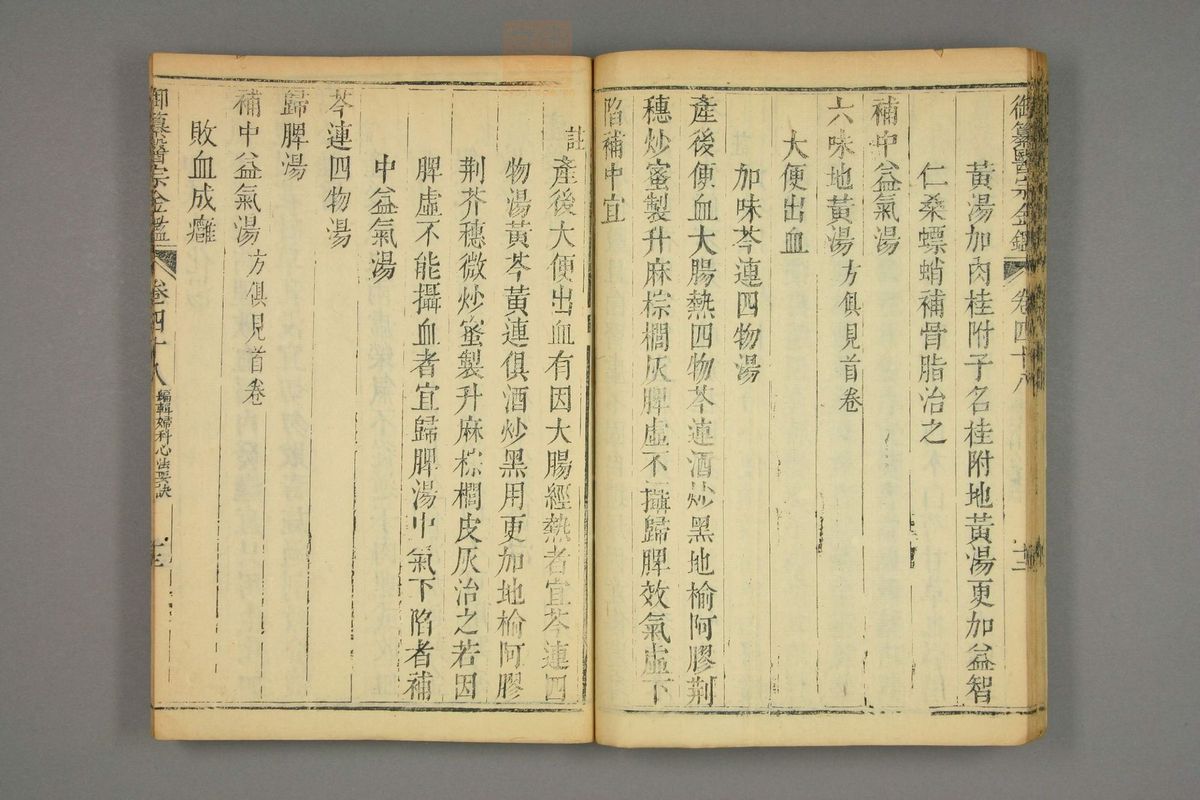 御纂醫宗金鑑 卷四十八 十三
黃湯加肉桂附子名桂附地黃湯更加益智
仁桑螵蛸補骨脂治之
補中益氣湯
六味地黃湯方俱見首卷
大便出血
加味芩連四物湯
產後便血大腸熱四物芩連酒炒黑地榆阿膠荆
穗炒蜜製升麻棕櫚灰脾虛不攝歸脾效氣虛下
陷補中宜
註產後大便出血有因大腸經熱者宜芩連四
物湯黃芩黃連俱酒炒黑用更加地榆阿膠
荆芥穗微炒蜜製升麻棕櫚皮灰治之若因
脾虛不能攝血者宜歸脾湯中氣下陷者補
中益氣湯
芩連四物湯
歸脾湯
補中益氣湯方俱見首卷
敗血成癰
御纂醫宗金鑑 卷四十八 編輯婦科心法要訣 十三